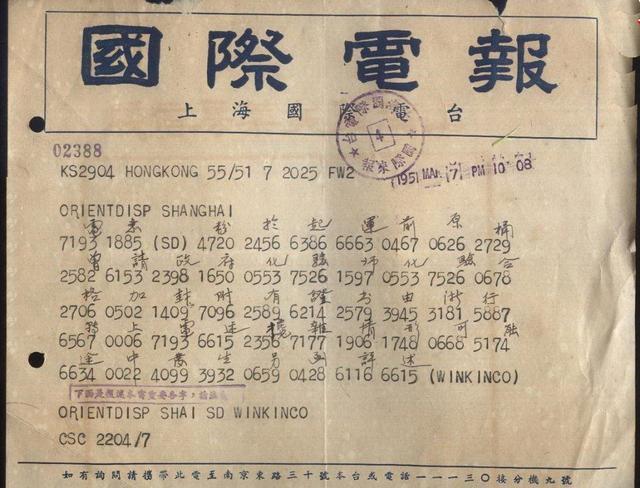 國際電報
上海國際電台
02388
KS2904 HONGKONG 55/51 7 2025 FW2
4
1951 MAR (7) PM 10 08
ORIENTDISP SHANGHAI
電 悉 粉 於 起 運 前 原 桶
7193 1885 (SD) 4720 2456 6386 6663 0467 0626 2729
曾 請 政 府 化 驗 師 化 驗 合
2582 6153 2398 1650 0553 7526 1597 0553 7526 0678
格 加 封 附 有 證 书 由 浙 行
2706 0502 1409 7096 2589 6214 2579 3945 3181 5887
轉 上 電 述 攙 雜 情 形 可 能
6567 0006 7193 6615 2356 7177 1906 1748 0668 5174
途 中 發 生 另 函 詳 述
6634 0022 4099 3932 0659 0428 6116 6615 (WINKINCO)
下面是複述本電重要各字，請
ORIENTDISP SHAI SD WINKINCO
CSC 2204/7
如有詢問請攜帶此電至南京東路三十號本台或電話一一一三〇接分機九號